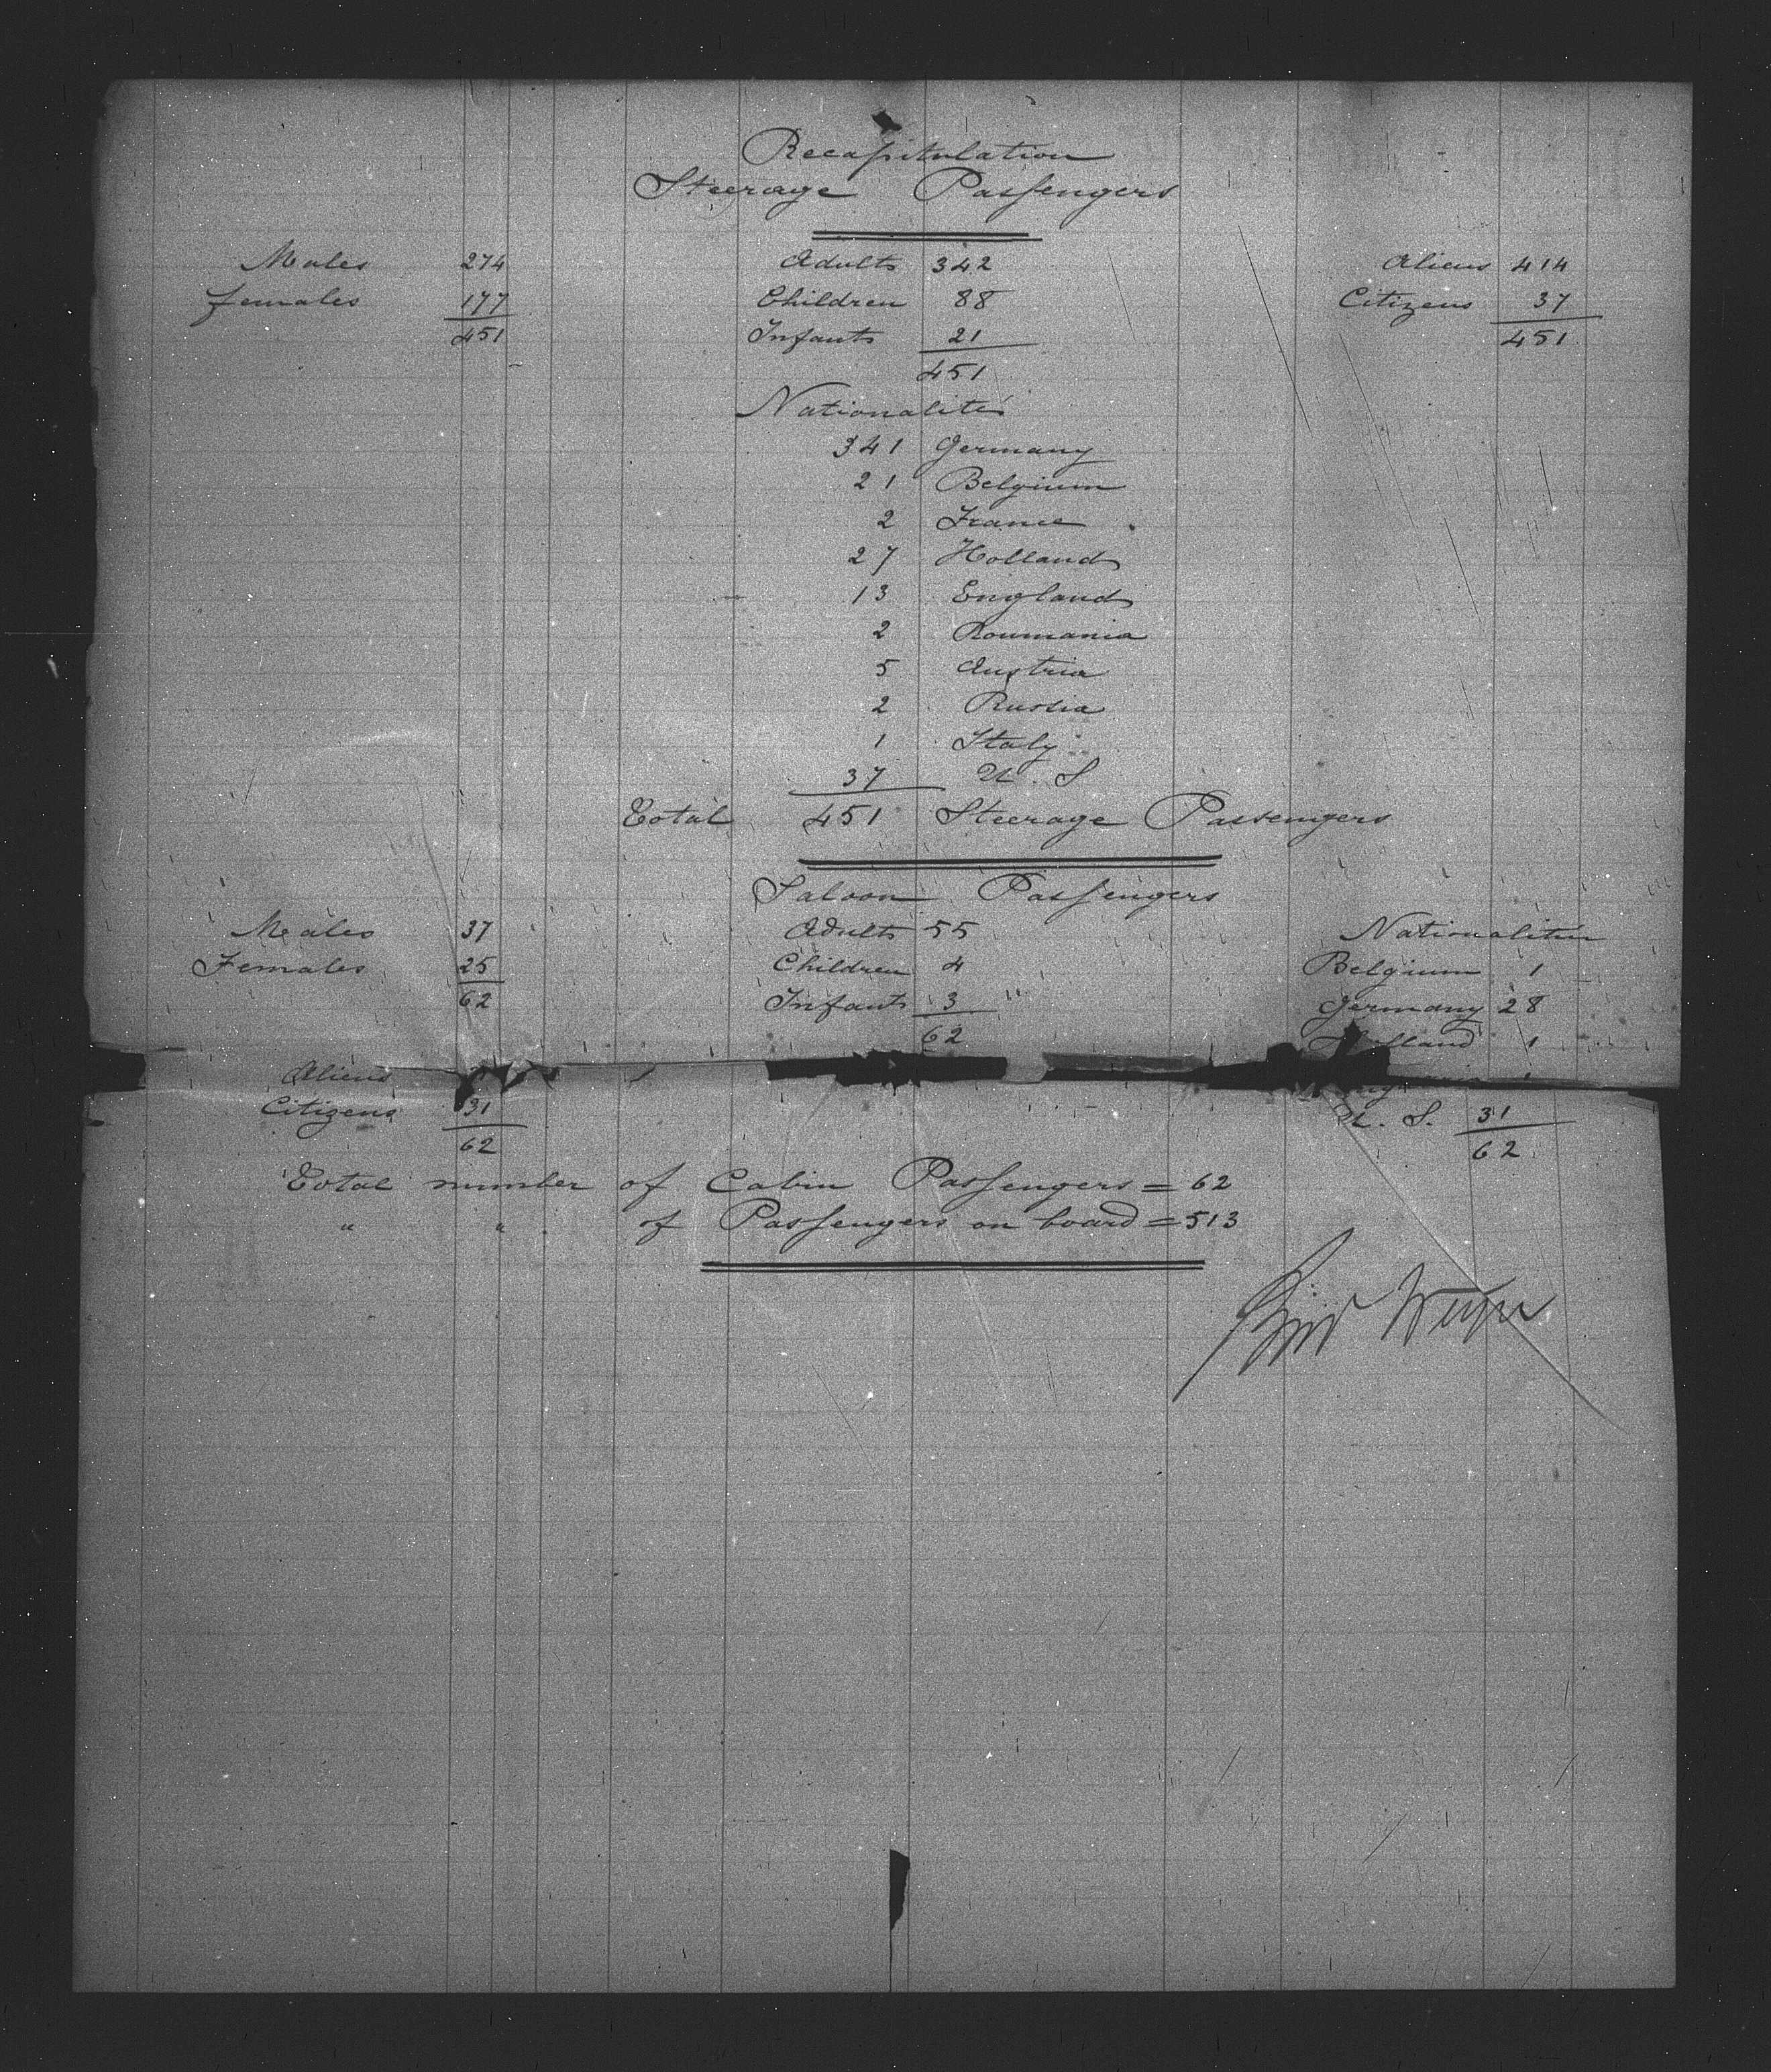 Recapitulation
Steerage Passengers
Males 274 Adults 342 Aliens 414
females 177 Children 88 Citizens 37
451 Infants 21 451
451
Nationalities
341 Germany
21 Belgium
2 France
27 Holland
13 England
2 Roumania
5 Austria
2 Russia
1 Italy
37 U. S
Total 451 Steerage Passengers
Saloon Passengers
Males 37 Adults 55 Nationalities
Females 25 Children 4 Belgium 1
62 Infants 3 Germany 28
62 Holland 1
Aliens 1
Citizens 31 U. S. 31
62 62
Total number of Cabin Passengers = 62
" " of Passengers on board = 513